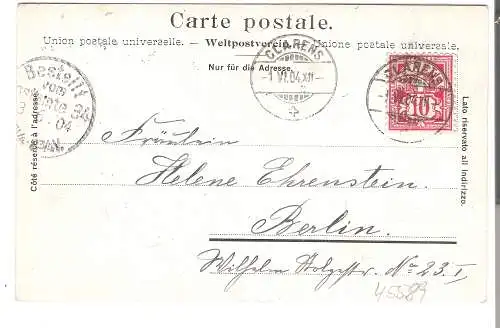 Carte postale.
Union postale universelle. — Weltpostverein. — Unione postale universale.
Nur für die Adresse.
Côté réservé à l'adresse.
Lato riservato all' indirizzo.
CLARENS
-1 VI.04.XII-
CLARENS
10
Bestellt
vom
Postamte
04
Fräulein
Helene Ehrenstein.
Berlin.
Wilhelm Stolzestr. No 23. I
45589